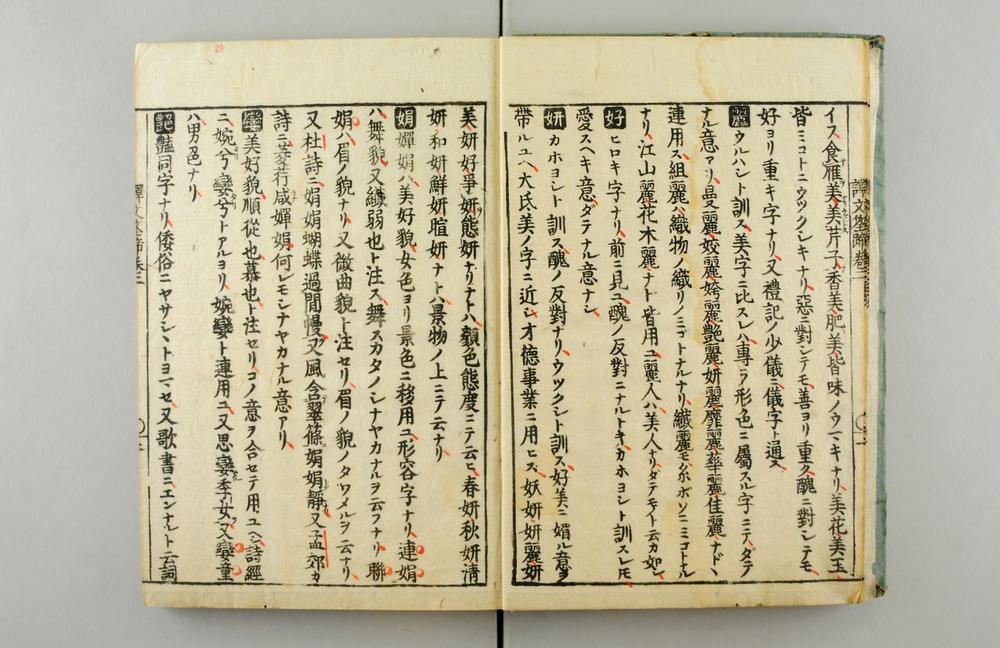 イス食雁美美芹子香美肥美皆味ノウマキナリ美花美玉
皆ミコトニウツクシキナリ惡ニ對シテモ善ヨリ重ク醜ニ對シテモ
好ヨリ重キ字ナリ又禮記ノ少儀ニ儀字ト通ス
麗ウルハシト訓ス美字ニ比スレハ專ラ形色ニ屬スル字ニテダテ
ナル意アリ曼麗姣麗姱麗艶麗妍麗靡麗華麗佳麗ナド
連用ス組麗ハ織物ノ織リノミゴトナルナリ纖麗モ糸ホソニミコトナル
ナリ江山麗花木麗ナト皆用ユ麗人ハ美人ナリダテモノト云カ如シ
好ヒロキ字ナリ前ニ見ユ醜ノ反對ニナルトキカホヨシト訓スレモ
愛スヘキ意ダテナル意ナシ
妍カホヨシト訓ス醜ノ反對ナリウツクシト訓ス好美ニ媚ル意ヲ
帶ルユヘ大氐美ノ字ニ近シ才德事業ニ用ヒス妖妍妍麗妍
美妍好爭妍態妍ナリナトハ顏色態度ニテ云ヒ春妍秋妍淸
妍和妍鮮妍暄妍ナトハ景物ノ上ニテ云ナリ
娟嬋娟ハ美好貌女色ヨリ景色ニ移用ユ形容字ナリ連娟
ハ舞貌又纎弱也ト注ス舞スカタノシナヤカナルヲ云フナリ聯
娟ハ眉ノ貌ナリ又微曲貌ト注セリ眉ノ貌ノタワメルヲ云ナリ
又杜詩ニ娟娟蝴蝶過閒慢又風含翠篠娟娟靜又孟郊カ
詩ニ菱荇咸嬋娟何レモシナヤカナル意アリ
孌美好貌順從也慕也ト注セリコノ意ヲ合セテ用ユヘシ詩經
ニ婉兮孌兮トアルヨリ婉孌ト連用ユ又思孌季女又孌童
ハ男色ナリ
艷豔同字ナリ倭俗ニヤサシヽトヨマセ又歌書ニエンナルト云詞